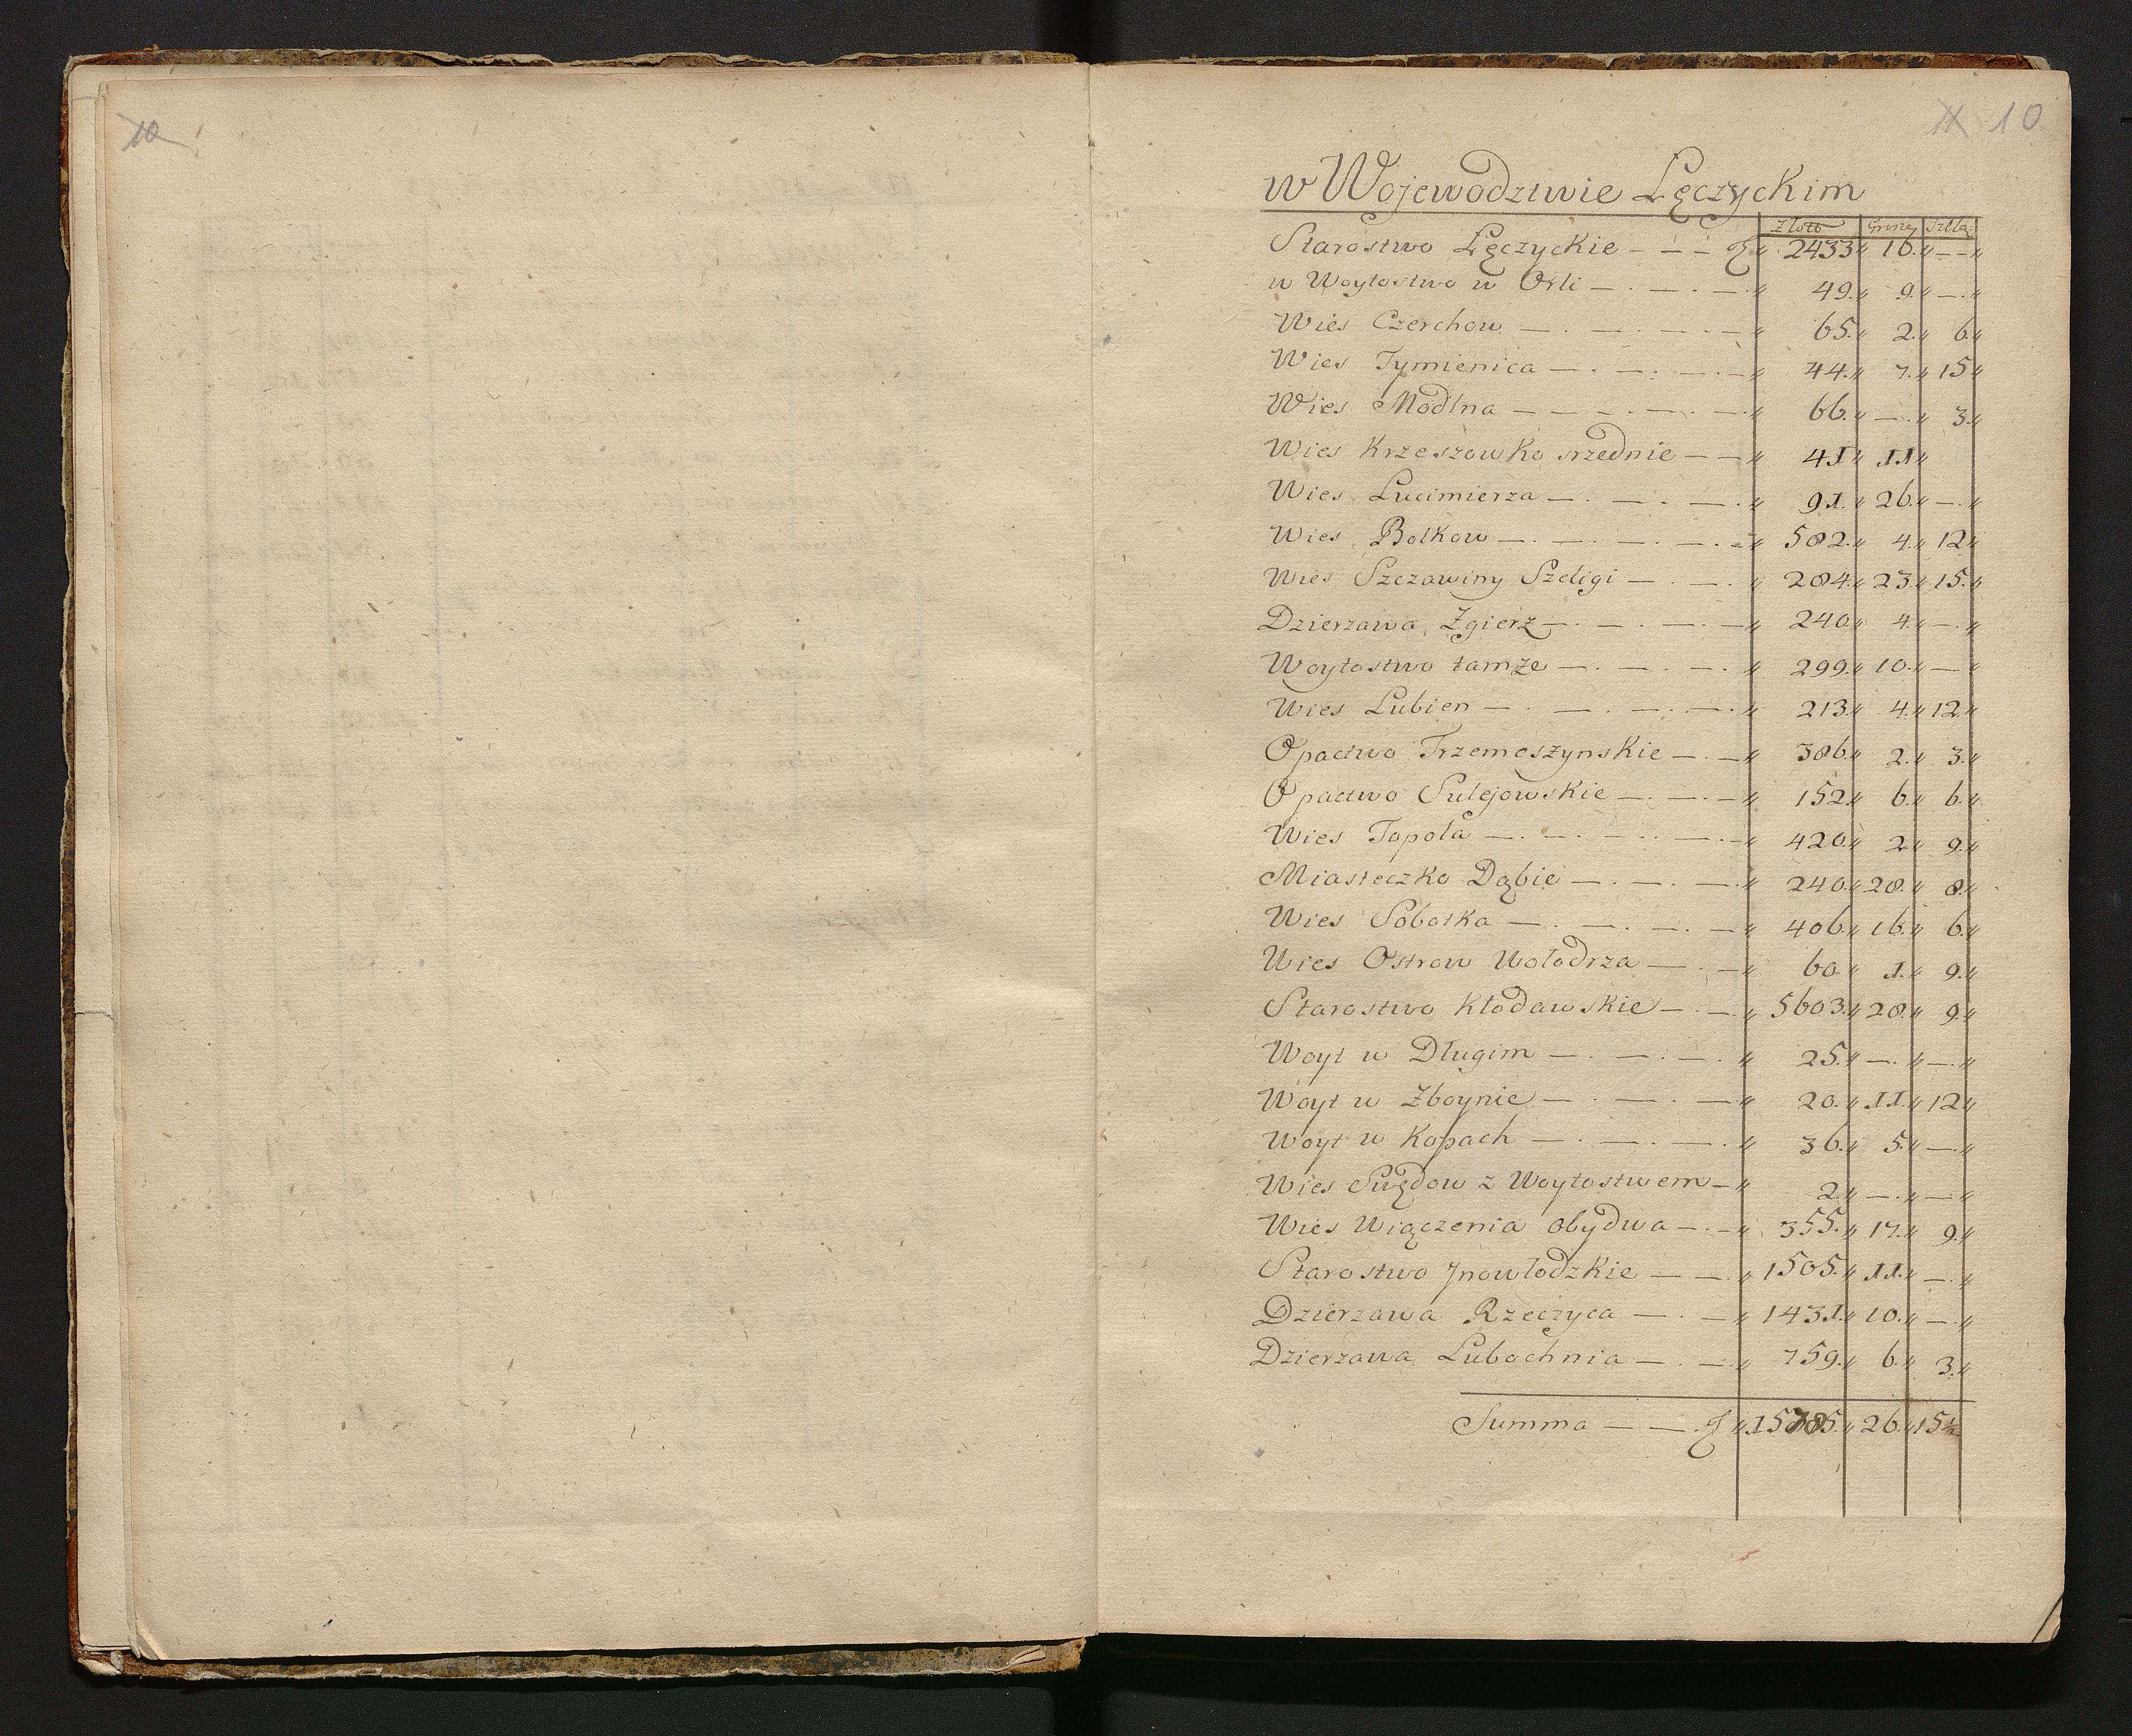 10
11 10
w Wojewodztwie Lęczyckim
Złote Groszy Szeląg:
Starostwo Lęczyckie — — — f „ 2433 „ 16. „ — — „
w Woytostwo w Orli — . — . — „ 49. „ 9. „ — . „
Wies Czerchow — . — . — . — „ 65. „ 2. „ 6. „
Wies Tymienica — . — . — . — „ 44. „ 7. „ 15 „
Wies Modlna — — — . — . — „ 66. „ — . „ 3. „
Wies Krzeszowko srzednie — — „ 41 „ 11 „
Wies Lucimierza — . — . — . „ 91. „ 26. „ — . „
Wies Bolkow — . — . — . — . „ 582. „ 4. „ 12 „
Wies Szczawiny Szeligi — . — . „ 284. „ 23. „ 15. „
Dzierzawa Zgierz — . — . — . — „ 240. „ 4. „ — . „
Woytostwo tamże — . — . — . „ 299. „ 10. „ — . „
Wies Lubien — . — . — . — . „ 213. „ 4. „ 12. „
Opactwo Trzemeszynskie — . — „ 386. „ 2. „ 3. „
Opactwo Sulejowskie — . — . — „ 152. „ 6. „ 6. „
Wies Topola — . — . — . — . — „ 420. „ 2. „ 9. „
Miasteczko Dąbie — . — . — . „ 240. „ 28. „ 8. „
Wies Sobotka — . — . — . — „ 406. „ 16. „ 6. „
Wies Ostrow Wolodrza — . — „ 60. „ 1. „ 9. „
Starostwo Kłodawskie — . — . „ 5603. „ 28. „ 9. „
Woyt w Długim — . — . — . „ 25. „ — . „ — . „
Woyt w Zboynie — . — . — „ 20. „ 11. „ 12 „
Woyt w Kopach — . — . — . „ 36. „ 5. „ — . „
Wies Swędow z Woytostwem — „ 2. „ — . „ — . „
Wies Wiączenia obydwa — . — „ 355. „ 17. „ 9. „
Starostwo Jnowlodzkie — — . „ 1505. „ 11. „ — . „
Dzierzawa Rzeczyca — . — „ 1431. „ 10. „ — . „
Dzierzawa Lubochnia — . — . „ 759. „ 6. „ 3. „
Summa — — . f „ 15785. „ 26. „ 15½